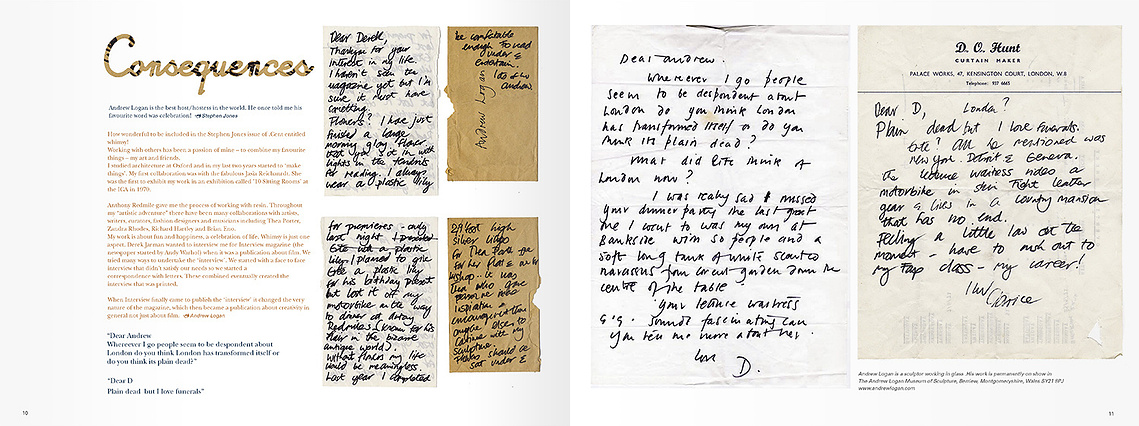 Consequences
Andrew Logan is the best host/hostess in the world. He once told me his
favourite word was celebration! Stephen Jones
How wonderful to be included in the Stephen Jones issue of .Cent entitled
whimsy!
Working with others has been a passion of mine – to combine my favourite
things – my art and friends.
I studied architecture at Oxford and in my last two years started to 'make
things'. My first collaboration was with the fabulous Jasia Reichardt. She
was the first to exhibit my work in an exhibition called '10 Sitting Rooms' at
the ICA in 1970.
Anthony Redmile gave me the process of working with resin. Throughout
my "artistic adventure" there have been many collaborations with artists,
writers, curators, fashion designers and musicians including Thea Porter,
Zandra Rhodes, Richard Hartley and Brian Eno.
My work is about fun and happiness, a celebration of life. Whimsy is just one
aspect. Derek Jarman wanted to interview me for Interview magazine (the
newspaper started by Andy Warhol) when it was a publication about film. We
tried many ways to undertake the 'interview'. We started with a face to face
interview that didn't satisfy our needs so we started a
correspondence with letters. These combined eventually created the
interview that was printed.
When Interview finally came to publish the 'interview' it changed the very
nature of the magazine, which then became a publication about creativity in
general not just about film. Andrew Logan
"Dear Andrew
Whereever I go people seem to be despondent about
London do you think London has transformed itself or
do you think its plain dead?"
"Dear D
Plain dead but I love funerals"
10
Dear Derek,
Thankyou for your
interest in my life.
I haven't seen the
magazine yet but I'm
sure it must have
something.
Flowers? I have just
finished a large
morning glory flower
that you sit in with
lights in the tendrils
for reading. I always
wear a plastic lily
be comfortable
enough to read
under &
entertain.
lots of love
andrew.
Andrew Logan
for premieres - only
last night I presented
Eate with a plastic
lily. I planned to give
Eate a plastic lily
for his birthday present
but lost it off my
motorbike on the way
to dinner at Antony
Redmiles (known for his
flair in the bizarre
antique world)
Without flowers my life
would be meaningless.
Last year I completed
2 a 9 foot high
silver lilies
for Thea Porter
for her flat & an
bishop. it was
Thea who gave
person me more
inspiration &
encouragement than
anyone else to
continue with my
sculpture.
Flowers should be
sat under &
Dear Andrew.
Wherever I go people
seem to be despondent about
London do you think London
has transformed itself or do you
think its plain dead?
What did Eate think of
London now?
I was really sad I missed
your dinner party the last great
one I went to was my own at
Bankside with 50 people and a
soft long tank of white scented
narcissus from covent garden down the
centre of the table!
Your leisure waitress
G.G. sounds fascinating can
you tell me more about her,
love
D.
D. O. Hunt
CURTAIN MAKER
PALACE WORKS, 47, KENSINGTON COURT, LONDON, W.8
Telephone: 937 6665
Dear D, London?
Plain dead but I love funerals.
Eate? All he mentioned was
new york. Detroit & Geneva.
the leisure waitress rides a
motorbike in skin tight leather
gear & lives in a country mansion
that has no end.
Feeling a little low at the
moment - have to rush out to
my tap class - my career!
luv
Andrew Logan is a sculptor working in glass. His work is permanently on show in
The Andrew Logan Museum of Sculpture, Berriew, Montgomeryshire, Wales SY21 8PJ
www.andrewlogan.com
11